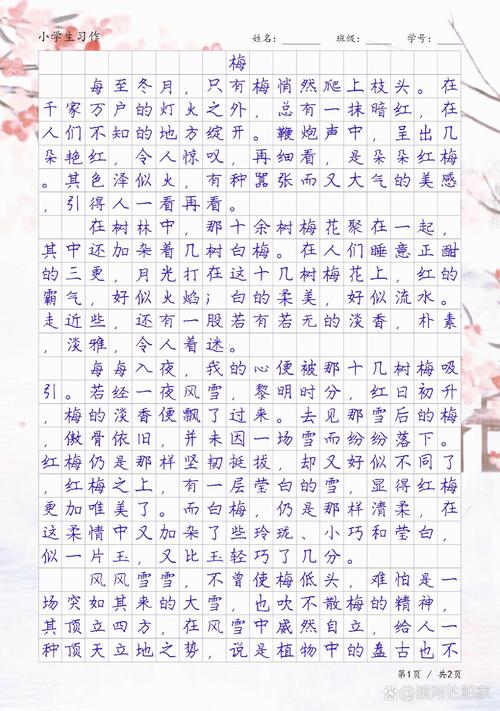 小学生习作 姓名：______ 班级：______ 学号：______
梅
每至冬月，只有梅悄然爬上枝头。在
千家万户的灯火之外，总有一抹暗红，在
人们不知的地方绽开。鞭炮声中，呈出几
朵艳红，令人惊叹，再细看，是朵朵红梅
。其色泽似火，有种嚣张而又大气的美感
，引得人一看再看。
在树林中，那十余树梅花聚在一起，
其中还加杂着几树白梅。在人们睡意正酣
的三更，月光打在这十几树梅花上，红的
霸气，好似火焰；白的柔美，好似流水。
走近些，还有一股若有若无的淡香，朴素
，淡雅，令人着迷。
每每入夜，我的心便被那十几树梅吸
引。若经一夜风雪，黎明时分，红日初升
，梅的淡香便飘了过来。去见那雪后的梅
，傲骨依旧，并未因一场雪而纷纷落下。
红梅仍是那样坚韧挺拔，却又好似不同了
，红梅之上，有一层莹白的雪，显得红梅
更加唯美了。而白梅，仍是那样清柔，在
这柔情中又加杂了些玲珑、小巧和莹白，
似一片玉，又比玉轻巧了几分。
风风雪雪，不曾使梅低头，难怕是一
场突如其来的大雪，也吹不散梅的精神，
其顶立四方，在风雪中威然自立，给人一
种顶天立地之势，说是植物中的盘古也不
第1页 / 共2页